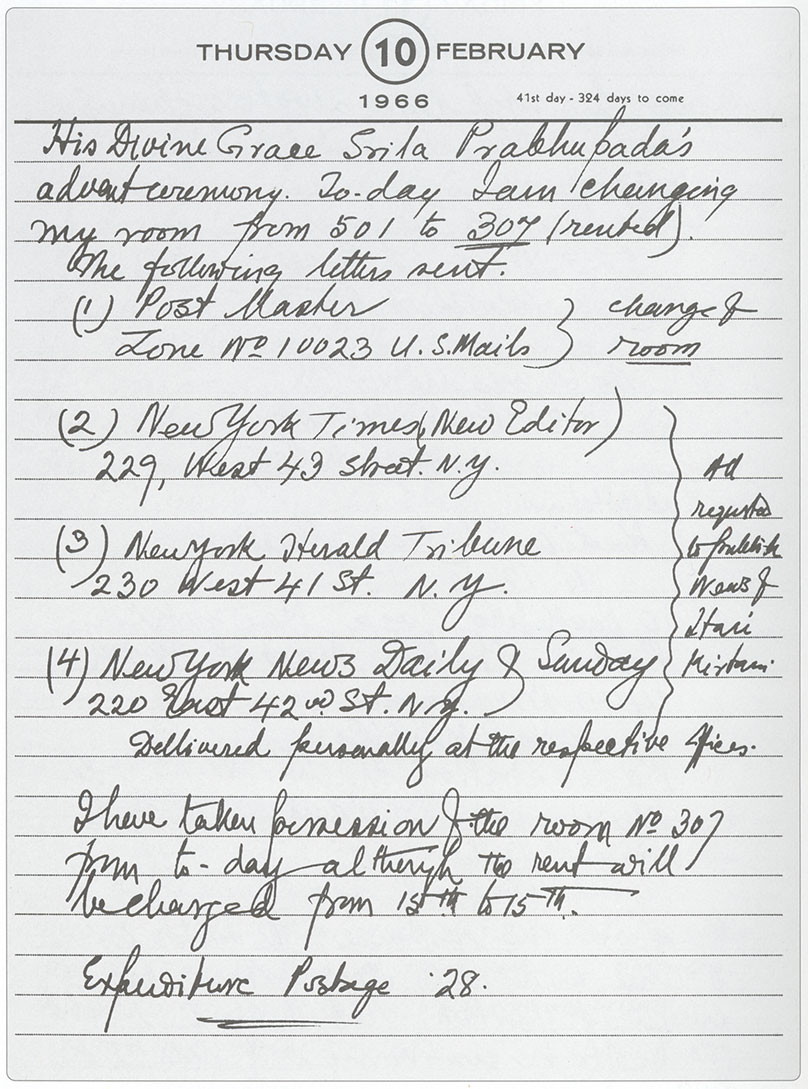 THURSDAY 10 FEBRUARY
1966
41st day - 324 days to come
His Divine Grace Srila Prabhupada's
advent ceremony. To-day I am changing
my room from 501 to 307 (rented).
The following letters sent.
(1) Post Master
Zone No 10023 U.S. Mails } change of
room
(2) New York Times (New Editor)
229, West 43 street. N.Y.
(3) New york Herald Tribune
230 West 41 St. N.Y.
(4) New York News Daily & Sunday
220 East 42nd St. N.Y.
Ad
requested
to publish
News of
Hari
Kirtan
Dellivered personally at the respective offices.
I have taken possession of the room No 307
from to-day although the rent will
be charged from 15th to 15th.
Expenditure Postage .28.